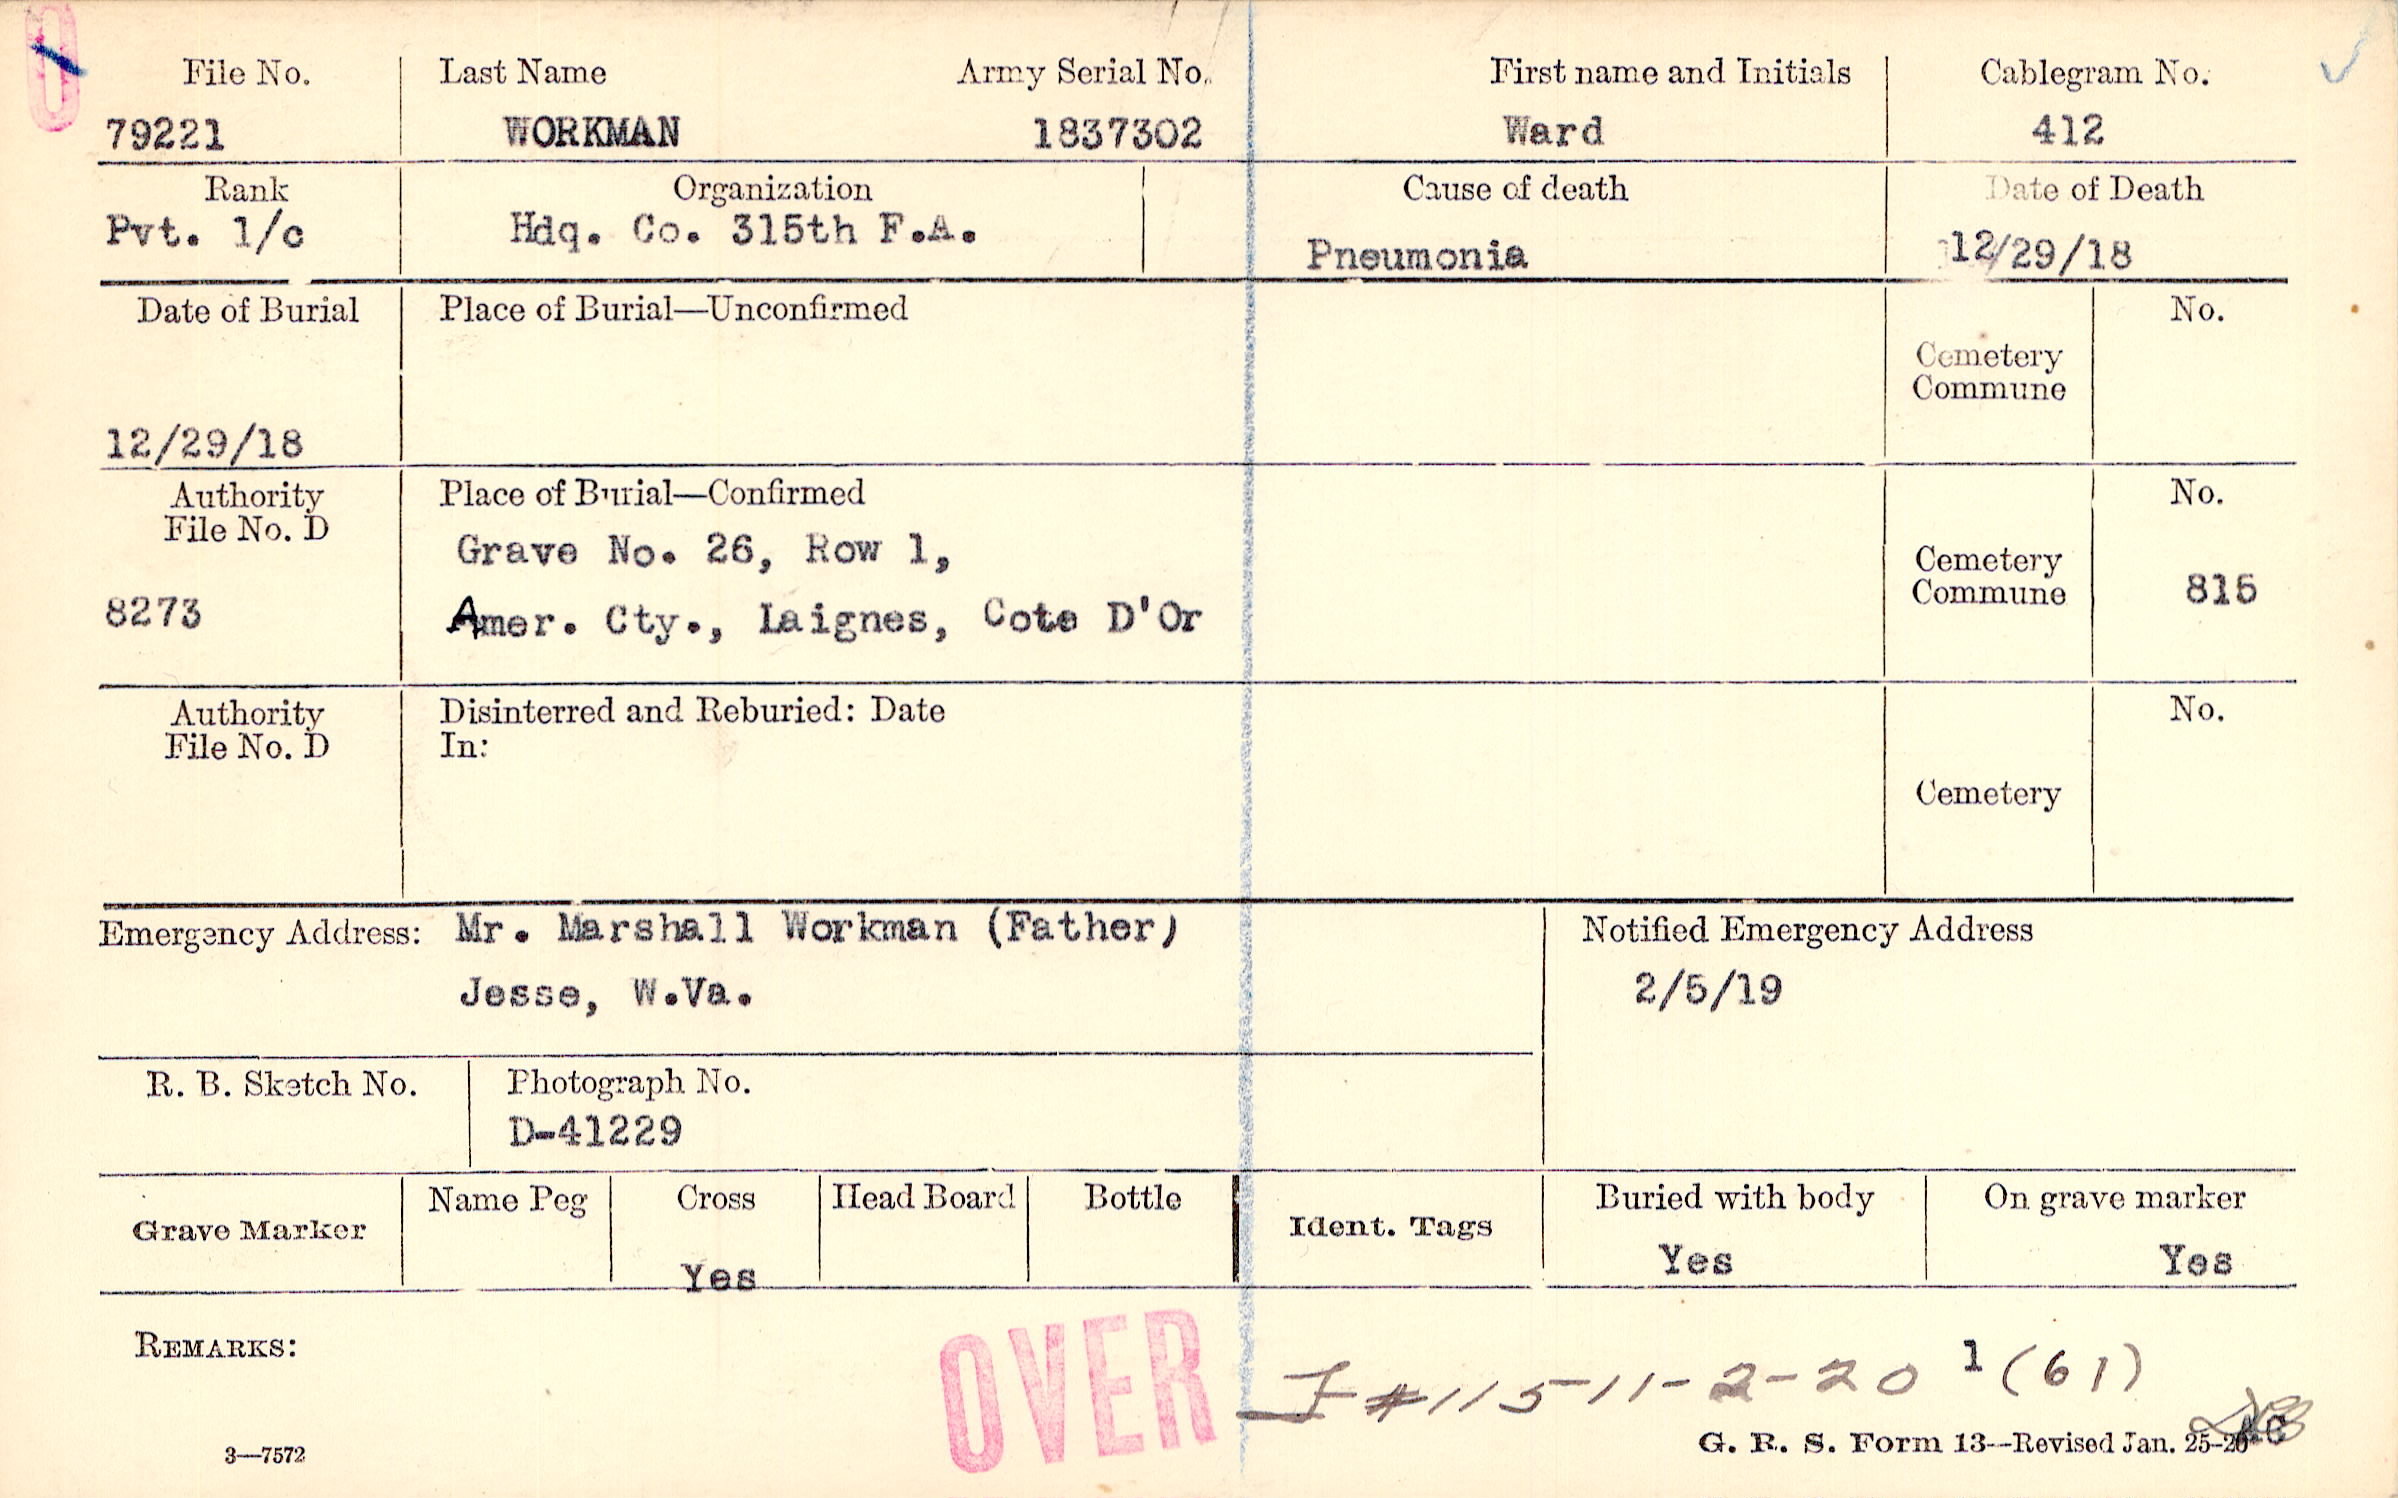 File No. Last Name Army Serial No. First name and Initials Cablegram No.
79221 WORKMAN 1837302 Ward 412
Rank Organization Cause of death Date of Death
Pvt. 1/c Hdq. Co. 315th F.A. Pneumonia 12/29/18
Date of Burial Place of Burial—Unconfirmed No.
Cemetery
Commune
12/29/18
Authority Place of Burial—Confirmed No.
File No. D
Grave No. 26, Row 1,
Cemetery
Commune 815
8273 Amer. Cty., Laignes, Cote D'Or
Authority Disinterred and Reburied: Date No.
File No. D In:
Cemetery
Emergency Address: Mr. Marshall Workman (Father) Notified Emergency Address
Jesse, W.Va. 2/5/19
R. B. Sketch No. Photograph No.
D-41229
Grave Marker Name Peg Cross Head Board Bottle Ident. Tags Buried with body On grave marker
Yes Yes Yes
REMARKS:
OVER
#115-11-2-20 1 (61)
3—7572 G. R. S. Form 13—Revised Jan. 25-20